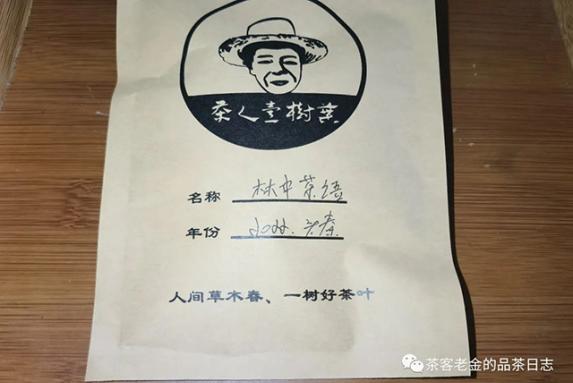 茶人壹樹葉
名称 林中茶语
年份 头春
人间草木春、一树好茶叶
茶客老金的品茶日志